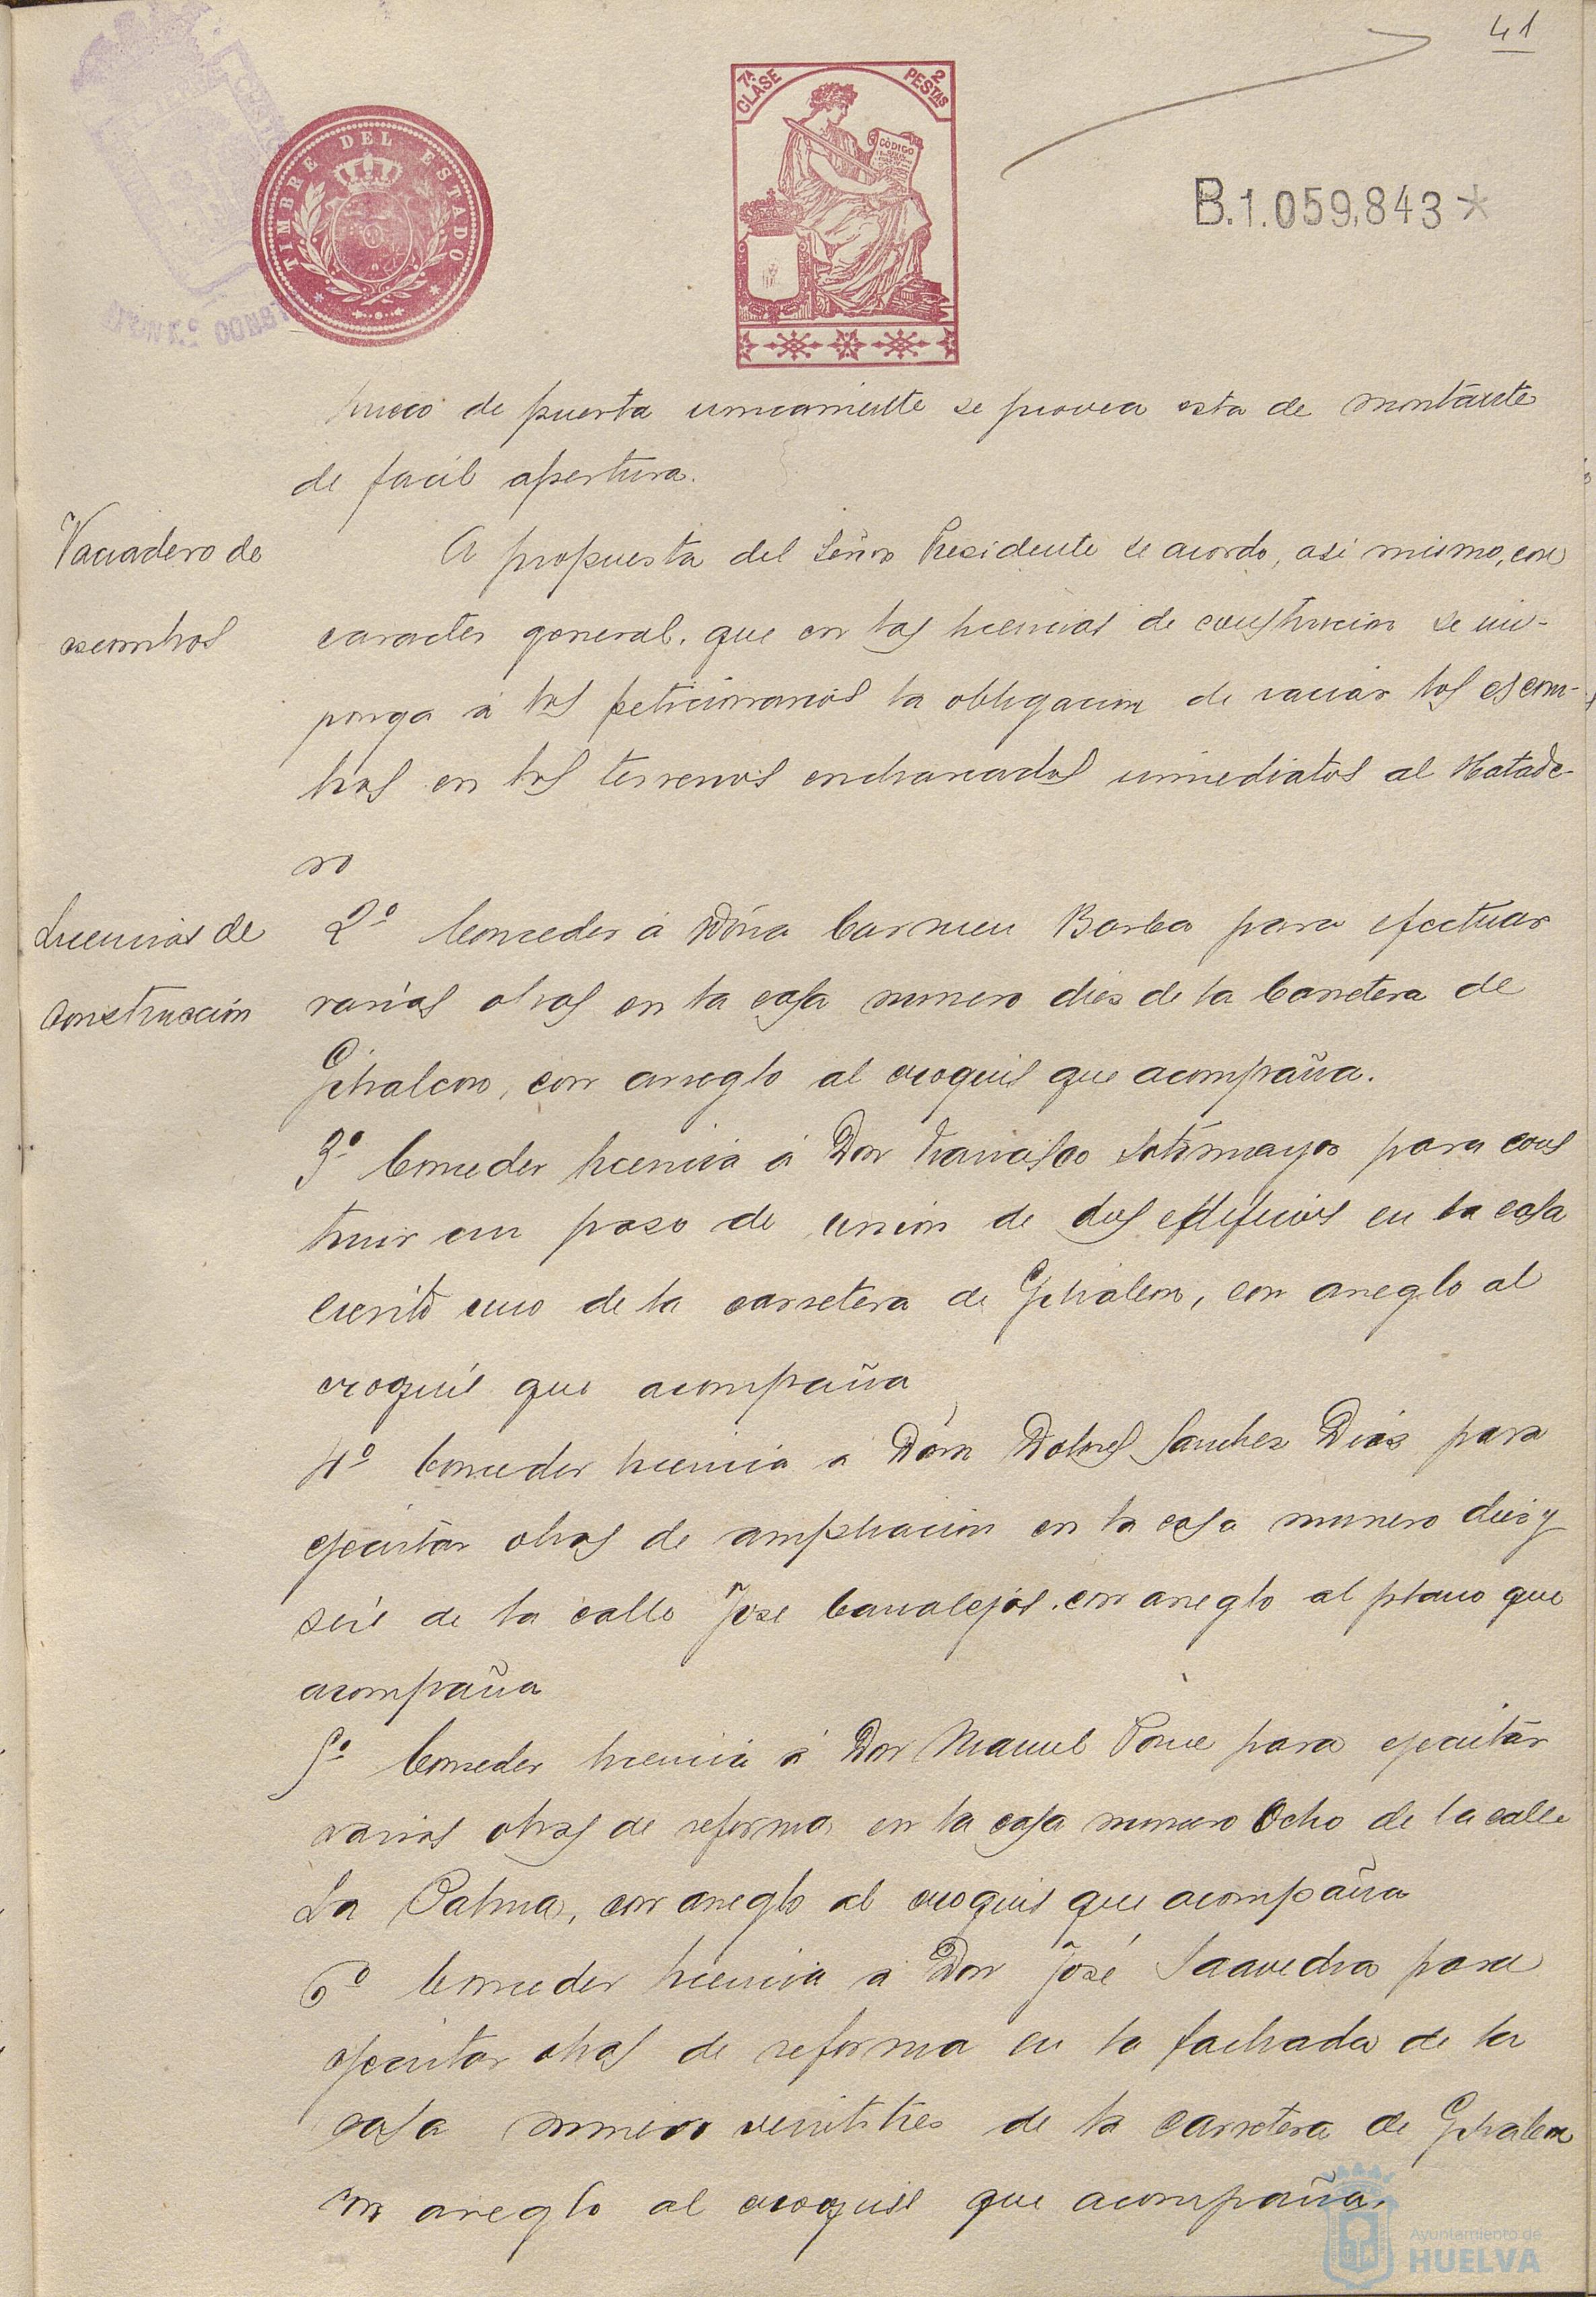 41
7ª CLASE 2 PESTAS
CÓDIGO
TIMBRE DEL ESTADO
B.1.059,843*
hueco de puerta unicamente se provea esta de montante
de facil apertura.
Vaciadero de
escombros
A propuesta del Señor Presidente se acordo, asi mismo, con
caracter general, que en las licencias de construcion se im-
ponga á los peticionarios la obligacion de vaciar los escom-
bros en los terrenos encharcados inmediatos al Matade-
ro
Licencias de
construcción
2º Conceder á Dóña Carmen Borba para efectuar
varias obras en la casa numero dies de la Carretera de
Gibraleon, con arreglo al croquis que acompaña.
3º Conceder licencia á Don Francisco Sotomayor para cons
truir un paso de unión de dos edificios en la casa
ciento uno de la carretera de Gibraleon, con arreglo al
croquis que acompaña
4º Conceder licencia a Dóña Dolores Sanchez Dias para
ejecutar obras de ampliacion en la casa numero dies y
seis de la calle Jose Canalejas, con arreglo al plano que
acompaña
5º Conceder licencia á Don Manuel Ponce para ejecutar
varias obras de reforma en la casa numero Ocho de la calle
La Palma, con arreglo al croquis que acompaña
6º Conceder licencia a Don José Saavedra para
ejecutar obras de reforma en la fachada de la
casa numero veintitres de la carretera de Gibraleon
con arreglo al croquis que acompaña.
Ayuntamiento de
HUELVA